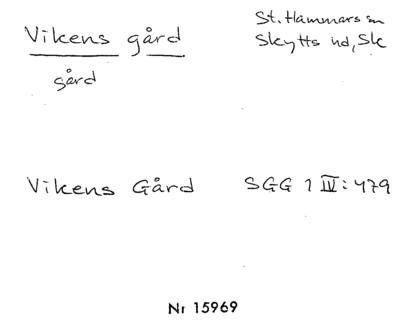 Vikens gård
St. Hammars sn
Skytts hd, Sk
gård
Vikens Gård SGG 1 IV: 479
Nr 15969